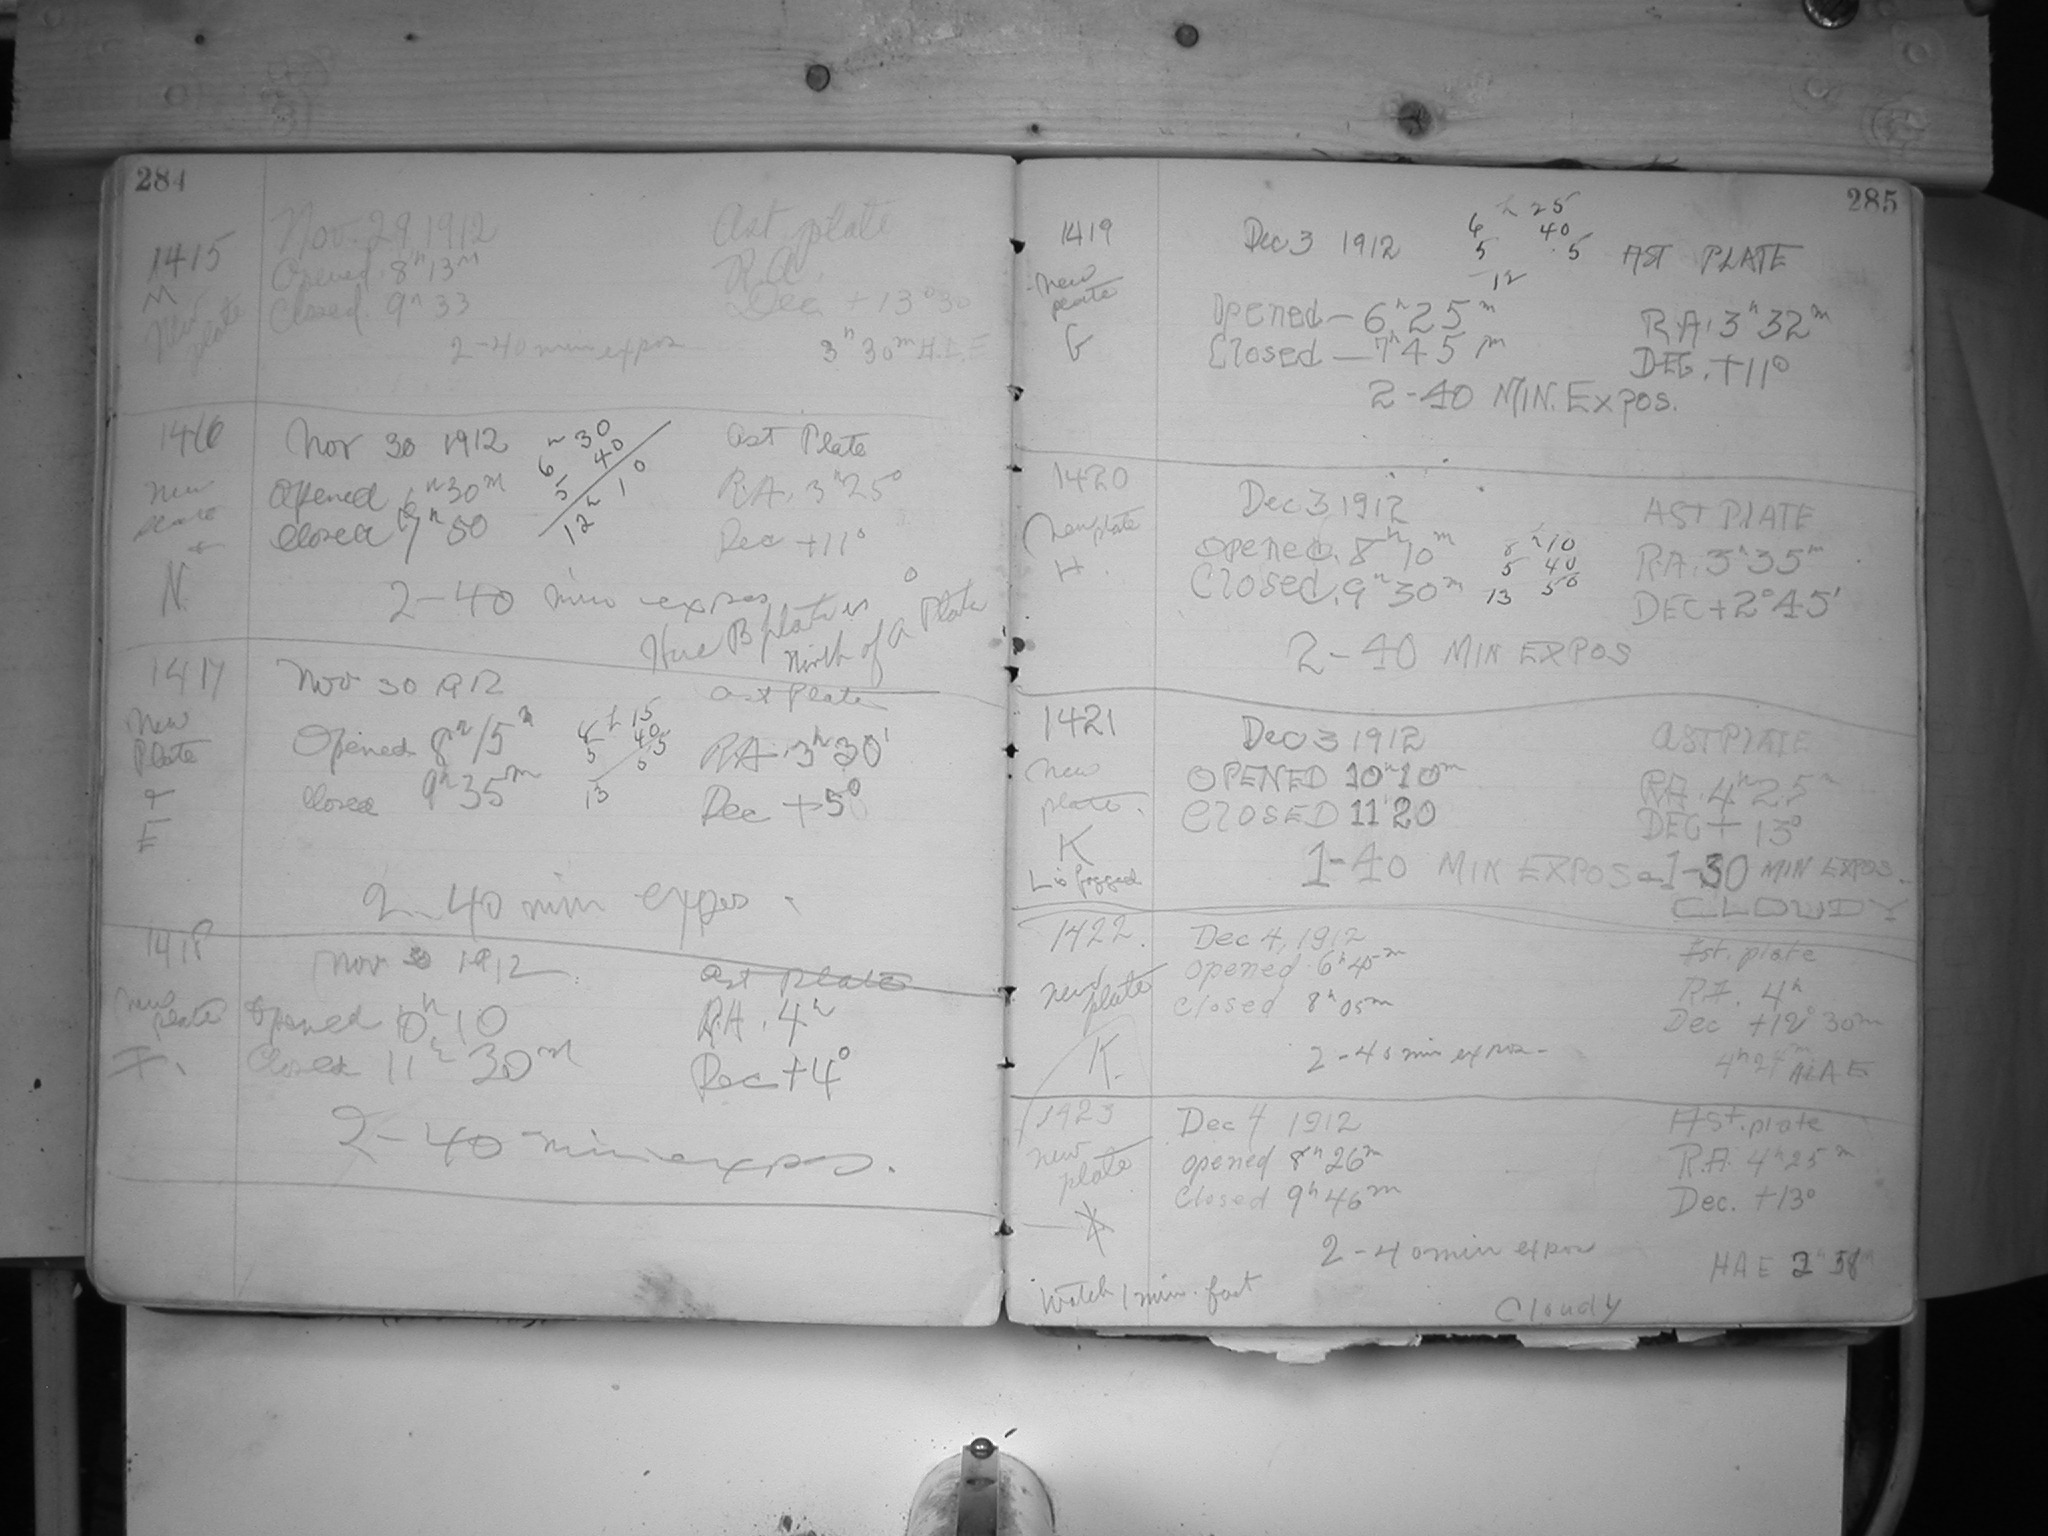 284
1415
M
New
plate
Nov. 29 1912
Opened 8h 13m
Closed 9h 33
2-40 min expos
Ast. plate
R.A.
Dec. +13°30
3h 30m H.A.E
1416
New
plate
N.
Nov 30 1912
Opened 6h 30m
Closed 7h 50
6h 30
5 40
12h 10
Ast Plate
R.A. 3h 25°
Dec +11°
2-40 min expos
Here B plate is
North of A Plate
1417
New
Plate
E
Nov 30 1912
Opened 8h 15m
Closed 9h 35m
8h 15
5 40
13 55
Ast Plate
R.A. 3h 30'
Dec +5°
2-40 min expos.
1418
New
plate
F.
Nov 30 1912
Opened 10h 10
Closed 11h 30m
Ast Plate
R.A. 4h
Dec +4°
2-40 min expos.
285
1419
New
plate
G
Dec 3 1912
6h 25
5 40
12 5
AST PLATE
Opened - 6h 25m
Closed - 7h 45m
R.A. 3h 32m
DEC. +11°
2-40 MIN. EXPOS.
1420
New plate
H.
Dec 3 1912
Opened. 8h 10m
Closed. 9h 30m
8h 10
5 40
13 50
AST PLATE
R.A. 3h 35m
DEC +2°45'
2-40 MIN EXPOS
1421
New
plate.
K
L is fogged
Dec 3 1912
OPENED 10h 10m
CLOSED 11 20
AST PLATE
RA. 4h 25m
DEC + 13°
1-40 MIN EXPOS - 1-30 MIN EXPOS.
CLOUDY
1422.
New
plate
K.
Dec 4, 1912
Opened 6h 45m
Closed 8h 05m
Ast. plate
R.A. 4h
Dec +12° 30m
2-40 min expos-
4h 24m HAE
1423
New
plate
Dec 4 1912
opened 8h 26m
Closed 9h 46m
Ast. plate
R.A. 4h 25m
Dec. +13°
2-40 min expos
HAE 2h 38m
Watch 1 min. fast
Cloudy